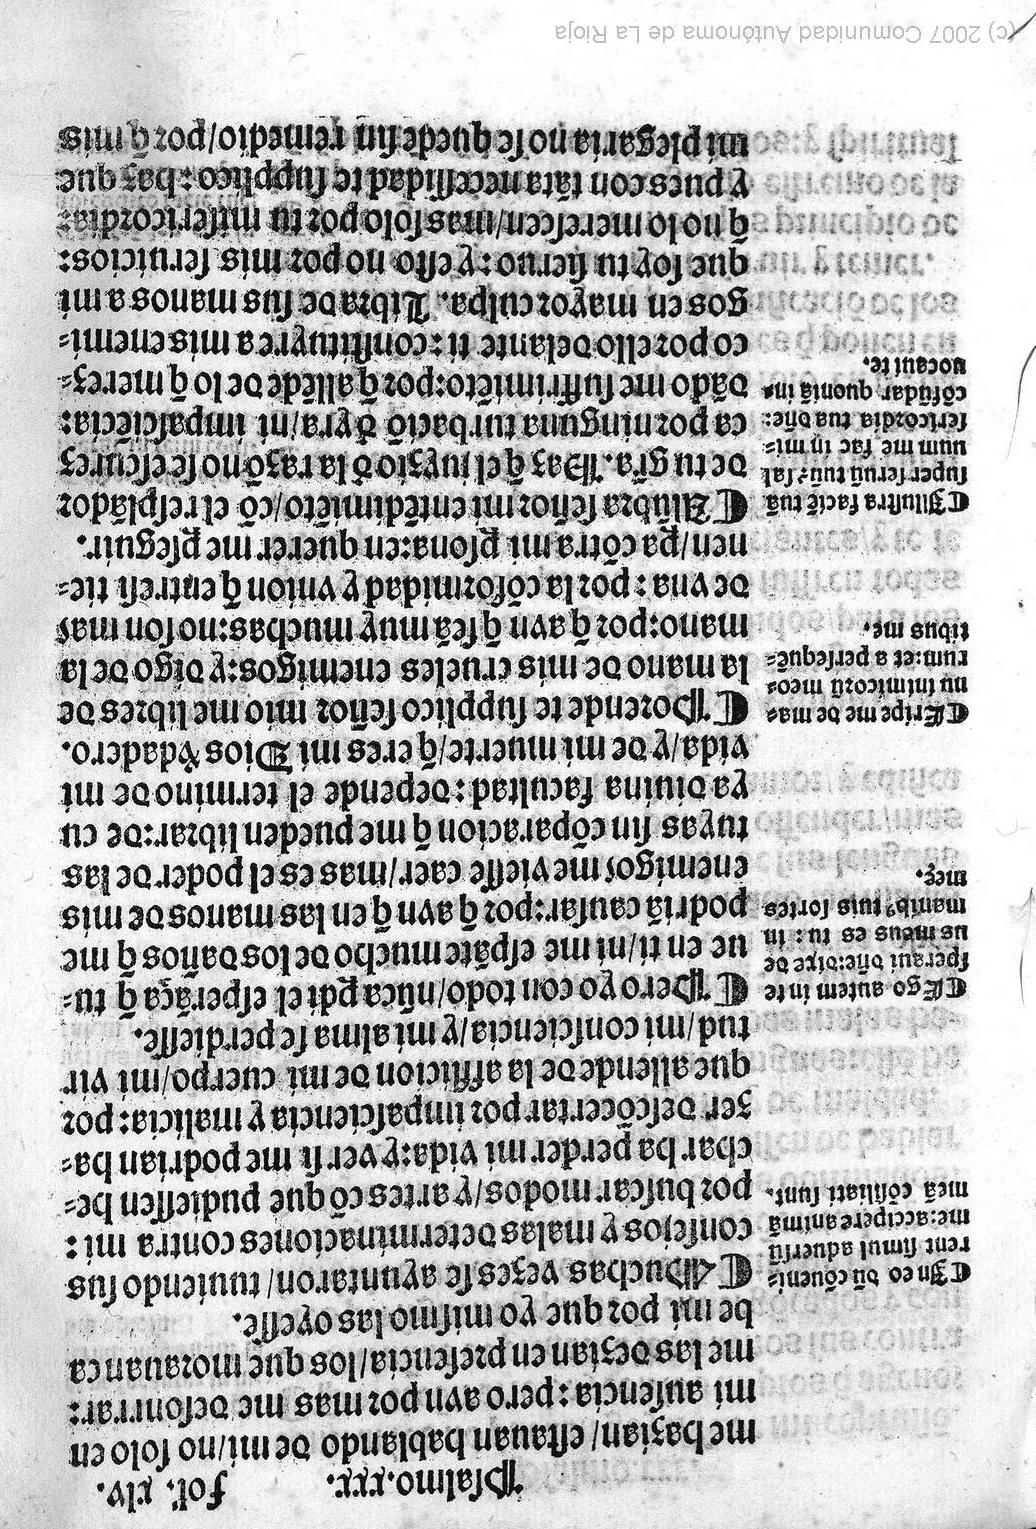 Psalmo.xxx. fol. xlv.
me hazian/estauan hablando de mi/no solo en
mi ausencia: pero avn por mas me desonrrar:
me las dezian en presencia/los que morauan ca
be mi por que yo mismo las oyesse.
¶Muchas vezes se ayuntaron/tuuiendo sus
consejos y malas determinaciones contra mi:
por buscar modos/y artes cõ que pudiessen he-
char ha perder mi vida: y ver si me podrian ha-
zer desconcertar por impasciencia y malicia: por
que allende de la affliction de mi cuerpo/mi vir
tud/mi consciencia/y mi alma se perdiesse.
¶Pero yo con todo/nũca pdi el esperãça q̃ tu-
ue en ti/ni me espãte mucho de los daños q̃ me
podriã causar: por q̃ avn q̃ en las manos de mis
enemigos me viesse caer/mas es el poder de las
tuyas sin cõparacion q̃ me pueden librar: de cu
ya diuina facultad: depende el termino de mi
vida/y de mi muerte/q̃ eres mi Dios v̉dadero.
¶Porende te supplico señor mio me libres de
la mano de mis crueles enemigos: y digo de la
mano: por q̃ avn q̃ seã muy muchas: no son mas
de vna: por la cõformidad y vnion q̃ entresi tie-
nen/pa cõtra mi psona: en querer me pseguir.
¶Alũbra señor mi entẽdimiẽto/cõ el resplãdor
de tu gr̃a. Haz q̃ el juyzio d̃ la razõ no se escurez
ca por ninguna turbaciõ d̃ yra/ni impasciẽcia:
dãdo me suffrimiẽto: por q̃ allẽde de lo q̃ merez-
co por ello delante ti: constituyrea mis enemi-
gos en mayor culpa. Libra de sus manos a mi
que soy tu sieruo: y esto no por mis seruicios:
q̃ no lo merescen/mas solo por tu misericordia:
y pues con tãta necessidad te supplico: haz que
mi plegaria no se quede sin remedio/por q̃ mis
¶In eo dũ cõueni-
rent simul aduersũ
me: accipere animã
meã cõsiliati sunt.
¶Ego autem in te
speraui dñe: dixe de
us meus es tu: in
manibꝰ tuis sortes
mee.
¶Eripe me de ma-
nu inimicorũ meo-
rum: et a persequẽ-
tibus me.
¶Illustra faciẽ tuã
super seruũ tuũ: sal
uum me fac in mi-
sericordia tua dñe:
cõfũdar quoniã in-
uocaui te.
(c) 2007 Comunidad Autónoma de La Rioja